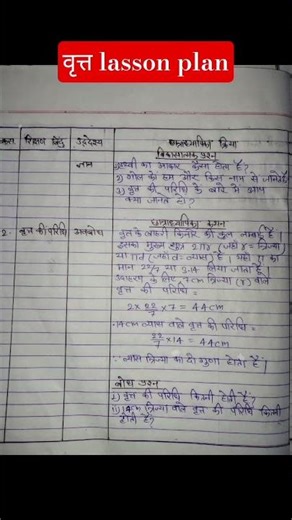 वृत्त lasson plan
क्रम शिक्षण बिंदु उद्देश्य छात्राध्यापिका क्रिया
विकासात्मक प्रश्न
ज्ञान
पृथ्वी का आकार कैसा होता है?
2) गोल को हम और किस नाम से जानते हैं
3) वृत्त की परिधि के बारे में आप
क्या जानते हो?
छात्राध्यापिका कथन
2. वृत्त की परिधि अवबोध
वृत्त के बाहरी किनारे की कुल लम्बाई है।
इसका मुख्य सूत्र 2πr (जहाँ r = त्रिज्या)
या πd (जहाँ d = व्यास) है। जहाँ π का
मान 22/7 या 3.14 लिया जाता है।
उदाहरण के लिए, 7 cm त्रिज्या (r) वाले
वृत्त की परिधि =
2 × 22/7 × 7 = 44 cm
14 cm व्यास वाले वृत्त की परिधि =
22/7 × 14 = 44 cm
∵ व्यास त्रिज्या का दो गुणा होता है।
बोध प्रश्न
1) वृत्त की परिधि कितनी होती है?
ii) 14 cm त्रिज्या वाले वृत्त की परिधि कितनी
होती है?